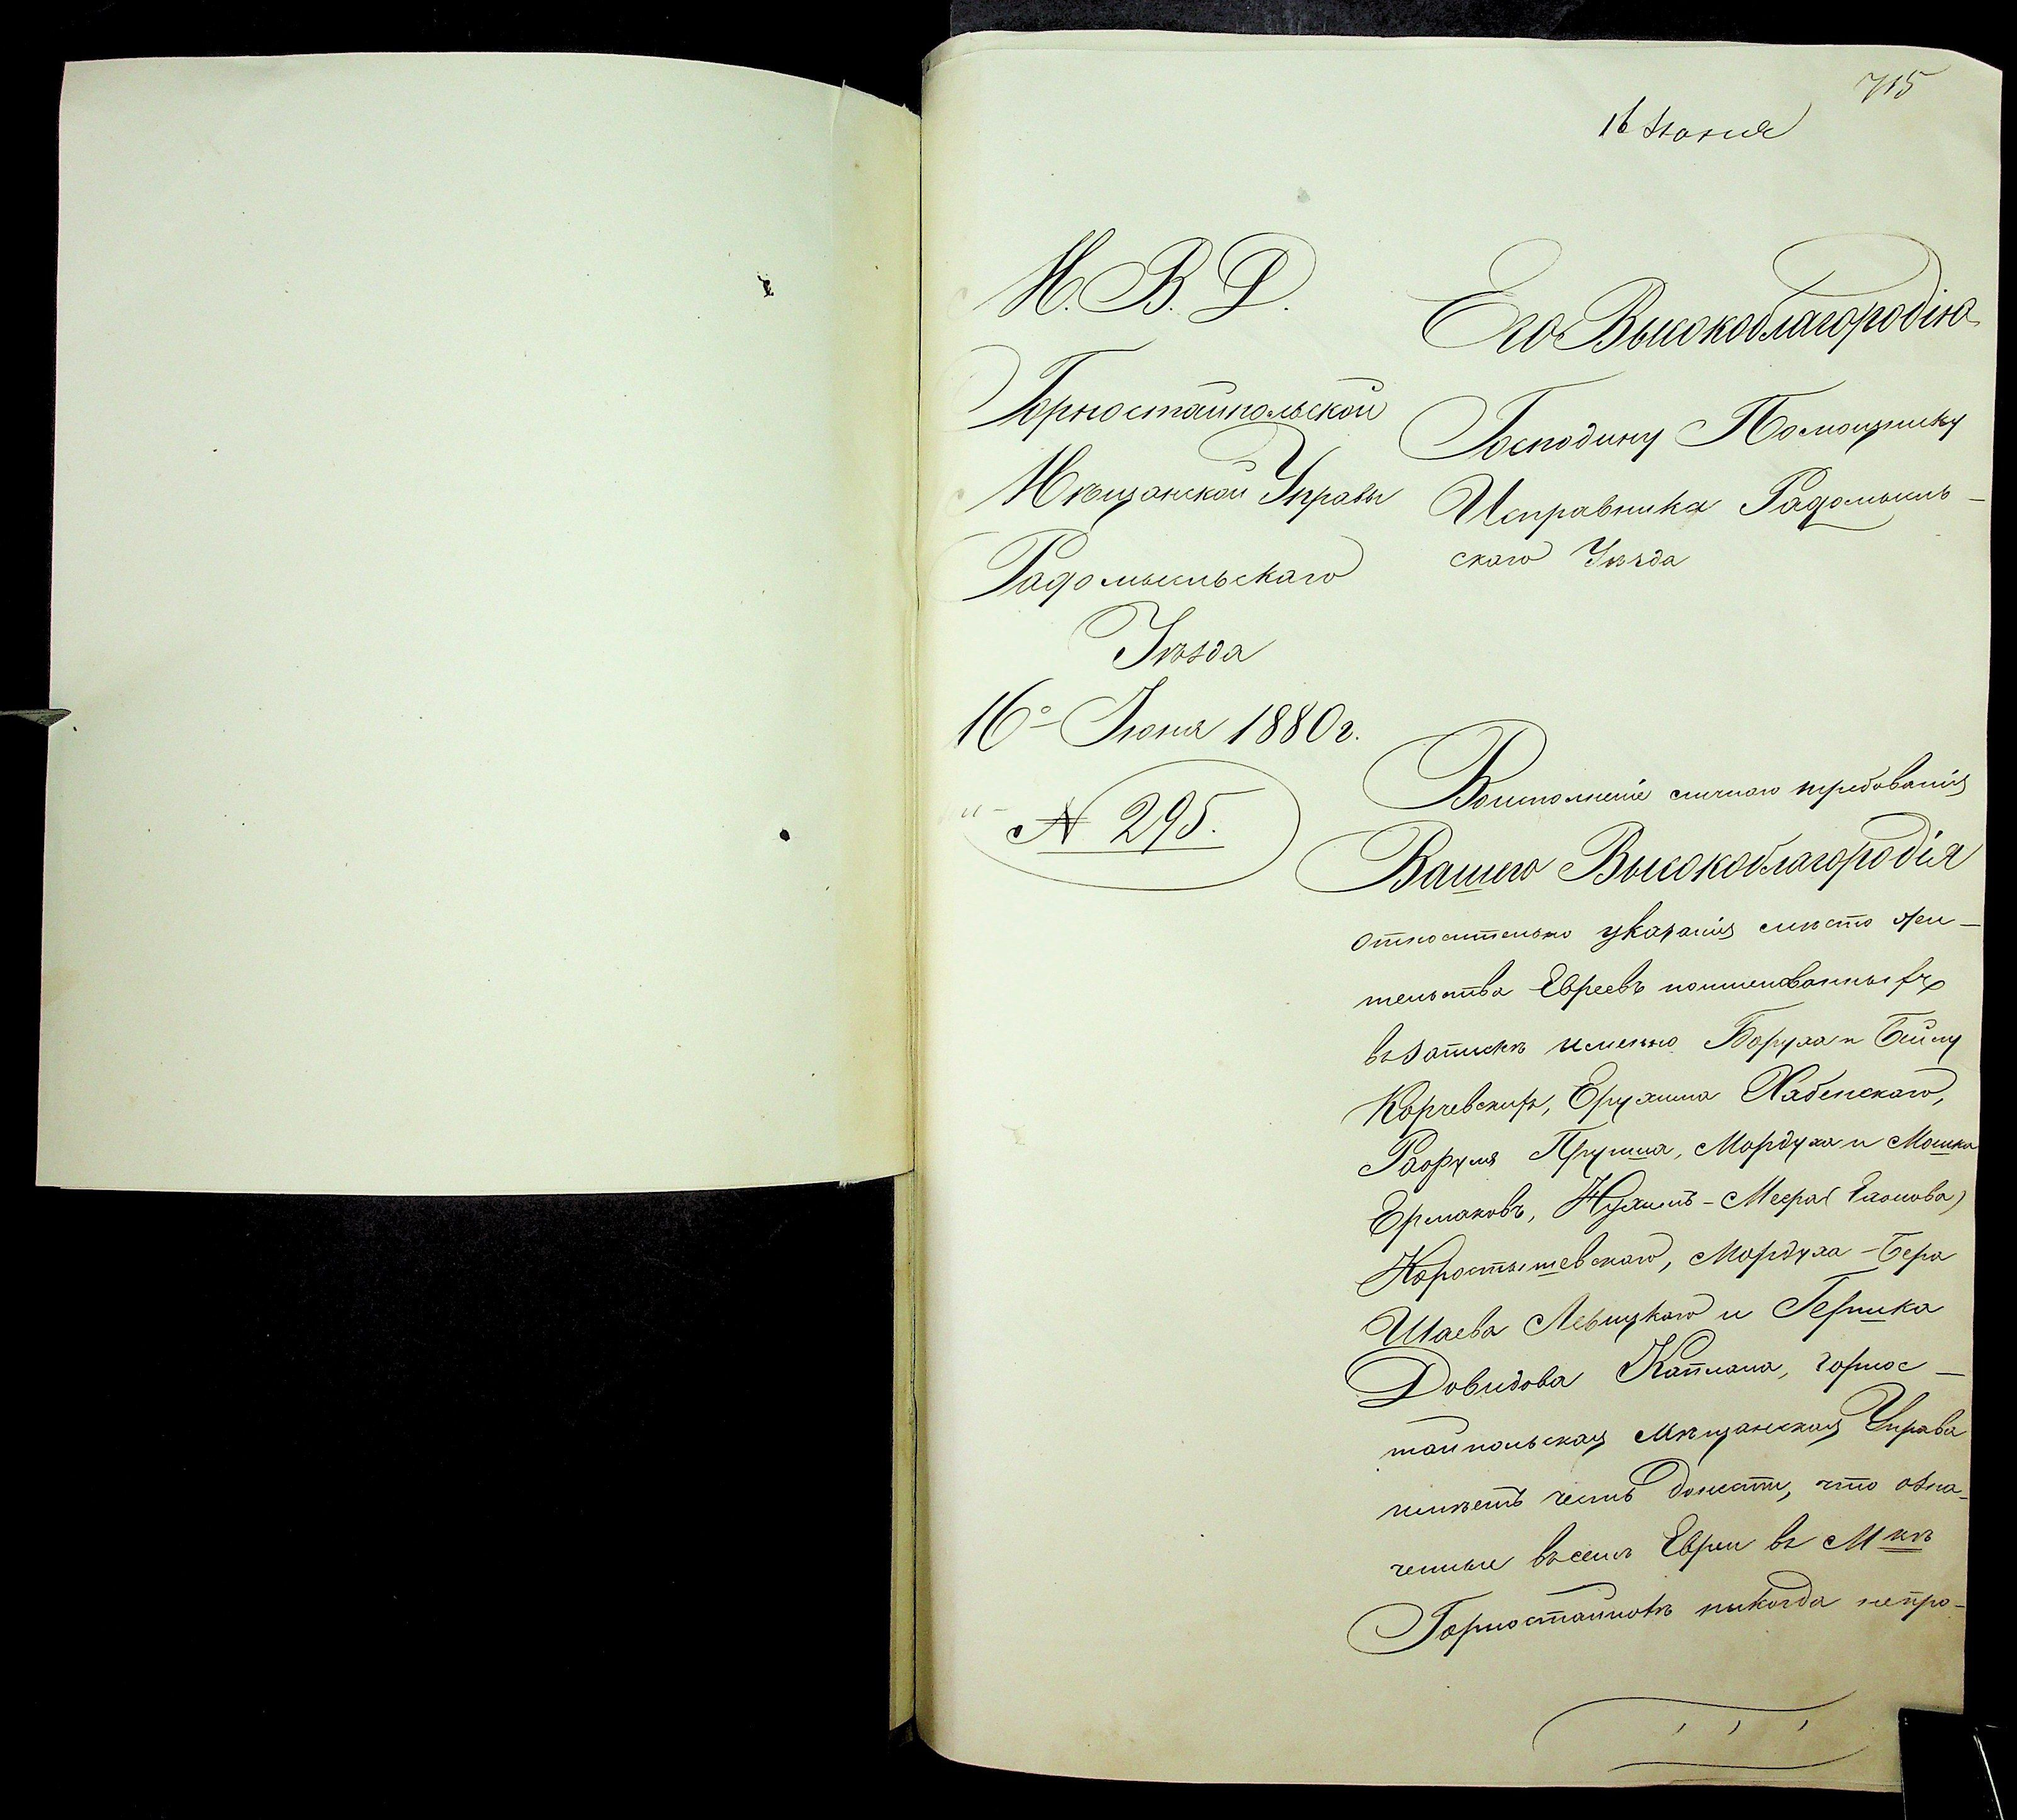 715
16 Июня
М. В. Д.
Горностайпольской
Мѣщанской Управы
Радомысльскаго
Уѣзда
16º Іюня 1880 г.
№ 295.
Его Высокоблагородію
Господину Помощнику
Исправника Радомысль-
скаго Уѣзда
Воисполненіе личнаго требованія
Вашего Высокоблагородія
относительно указанія мѣсто жи-
тельства Евреевъ поименованныхъ
въ запискѣ именно Боруха и Бейлу
Корчевскихъ, Ерухима Хабенскаго,
Рафуля Прушия, Мордуха и Мошка
Ермаковъ, Нухимъ-Меера (Хаимова)
Коростышевскаго, Мордуха-Бера
Шаева Левицкаго и Гершка
Довидова Каплана, горнос-
тайпольская Мѣщанская Управа
имѣетъ честь донести, что озна-
ченные въ семъ Евреи въ М-кѣ
Горностайполѣ никогда непро-